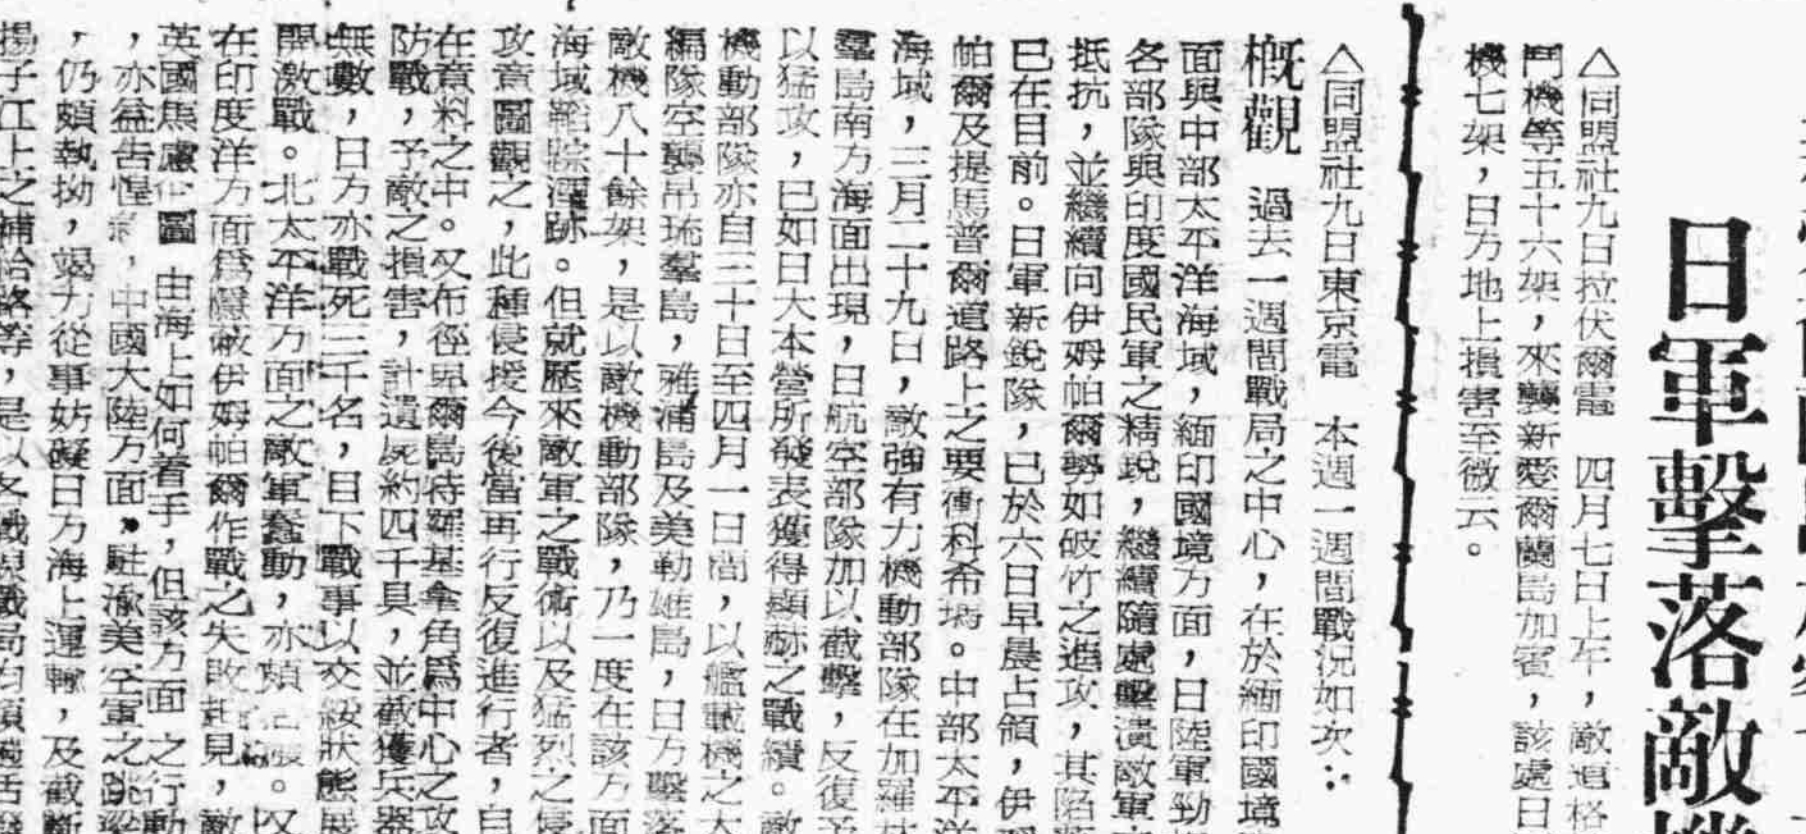 日軍擊落敵機
△同盟社九日拉伏爾電　四月七日上午，敵道格
鬥機等五十六架，來襲新愛爾蘭島加賓，該處日
機七架，日方地上損害至微云。
△同盟社九日東京電　本週一週間戰況如次：
概觀　過去一週間戰局之中心，在於緬印國境
面與中部太平洋海域，緬印國境方面，日陸軍勁
各部隊與印度國民軍之精銳，繼續隨處擊潰敵軍
抵抗，並繼續向伊姆帕爾勢如破竹之進攻，其陷落
已在目前。日軍新銳隊，已於六日早晨占領，伊姆
帕爾及提馬普爾道路上之要衝科希瑪。中部太平洋
海域，三月二十九日，敵強有力機動部隊在加羅林
羣島南方海面出現，日航空部隊加以截擊，反復予
以猛攻，已如日大本營所發表獲得顯赫之戰績。敵
機動部隊亦自三十日至四月一日間，以艦載機之大
編隊空襲帛琉羣島，雅浦島及美勒雄島，日方擊落
敵機八十餘架，是以敵機動部隊，乃一度在該方面
海域韜踪潛跡。但就歷來敵軍之戰術以及猛烈之侵
攻意圖觀之，此種侵授今後當再行反復進行者，自
在意料之中。又布徑畀爾島特羅基拿角爲中心之攻
防戰，予敵之損害，計遺屍約四千具，並截獲兵器
無數，日方亦戰死三千名，目下戰事以交綏狀態展
開激戰。北太平洋方面之敵軍蠢動，亦頗　　。又
在印度洋方面爲隱蔽伊姆帕爾作戰之失敗起見，敵
英國焦慮企圖　由海上如何着手，但該方面之行動
，亦益告惶　，中國大陸方面，駐渝美空軍之跳梁
，仍頗執拗，竭力從事妨礙日方海上運輸，及截斷
揚子江上之補給路等，是以各　　戰局